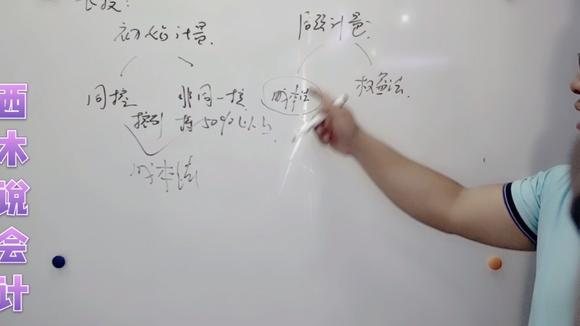 长投:
初始计量.
后续计量.
同控
非同一控
成本法
权益法.
控制
持50%以上.
成本法
西木说会计